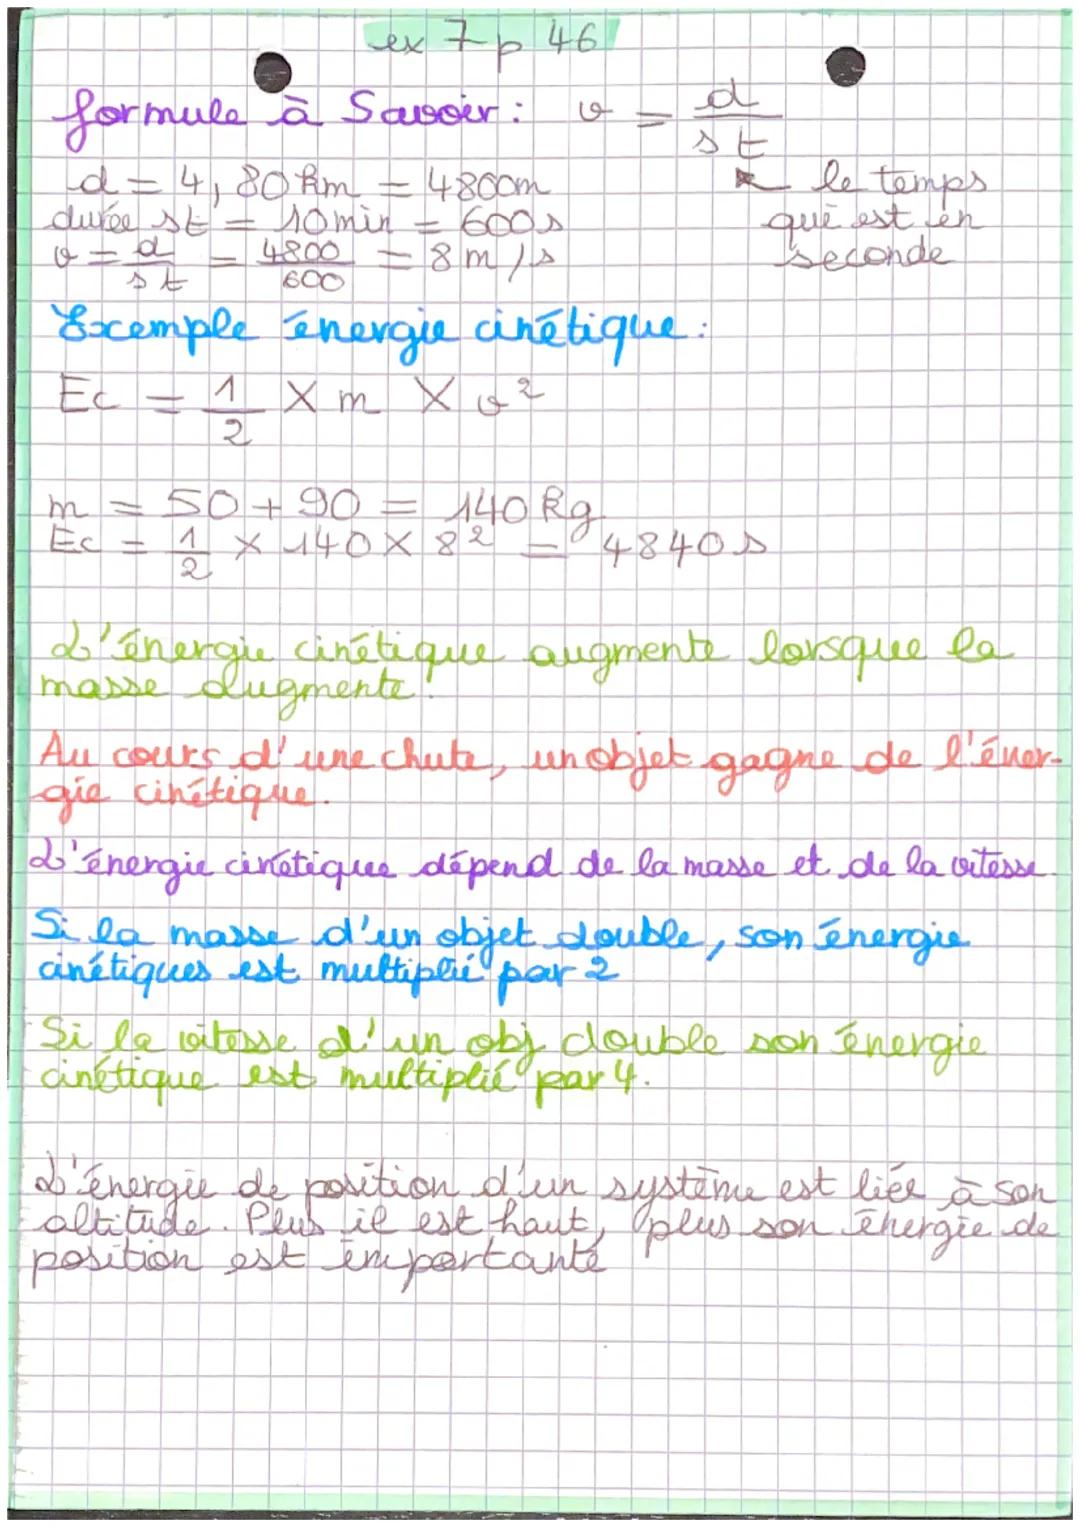 ex 7 p 46
formule à Savoir : v = d / st
d = 4,80 km = 4800m
le temps
durée st = 10 min = 600s
qui est en
v = d / st = 4800 / 600 = 8 m/s
seconde
Exemple énergie cinétique :
Ec = 1/2 X m X v²
m = 50 + 90 = 140 kg
Ec = 1/2 x 140 x 8² = 4840s
L'énergie cinétique augmente lorsque la
masse augmente.
Au cours d'une chute, un objet gagne de l'éner-
gie cinétique.
L'énergie cinétique dépend de la masse et de la vitesse.
Si la masse d'un objet double, son énergie
cinétiques est multiplié par 2
Si la vitesse d'un obj double son énergie
cinétique est multiplié par 4.
L'énergie de position d'un système est liée à son
altitude. Plus il est haut, plus son énergie de
position est importante